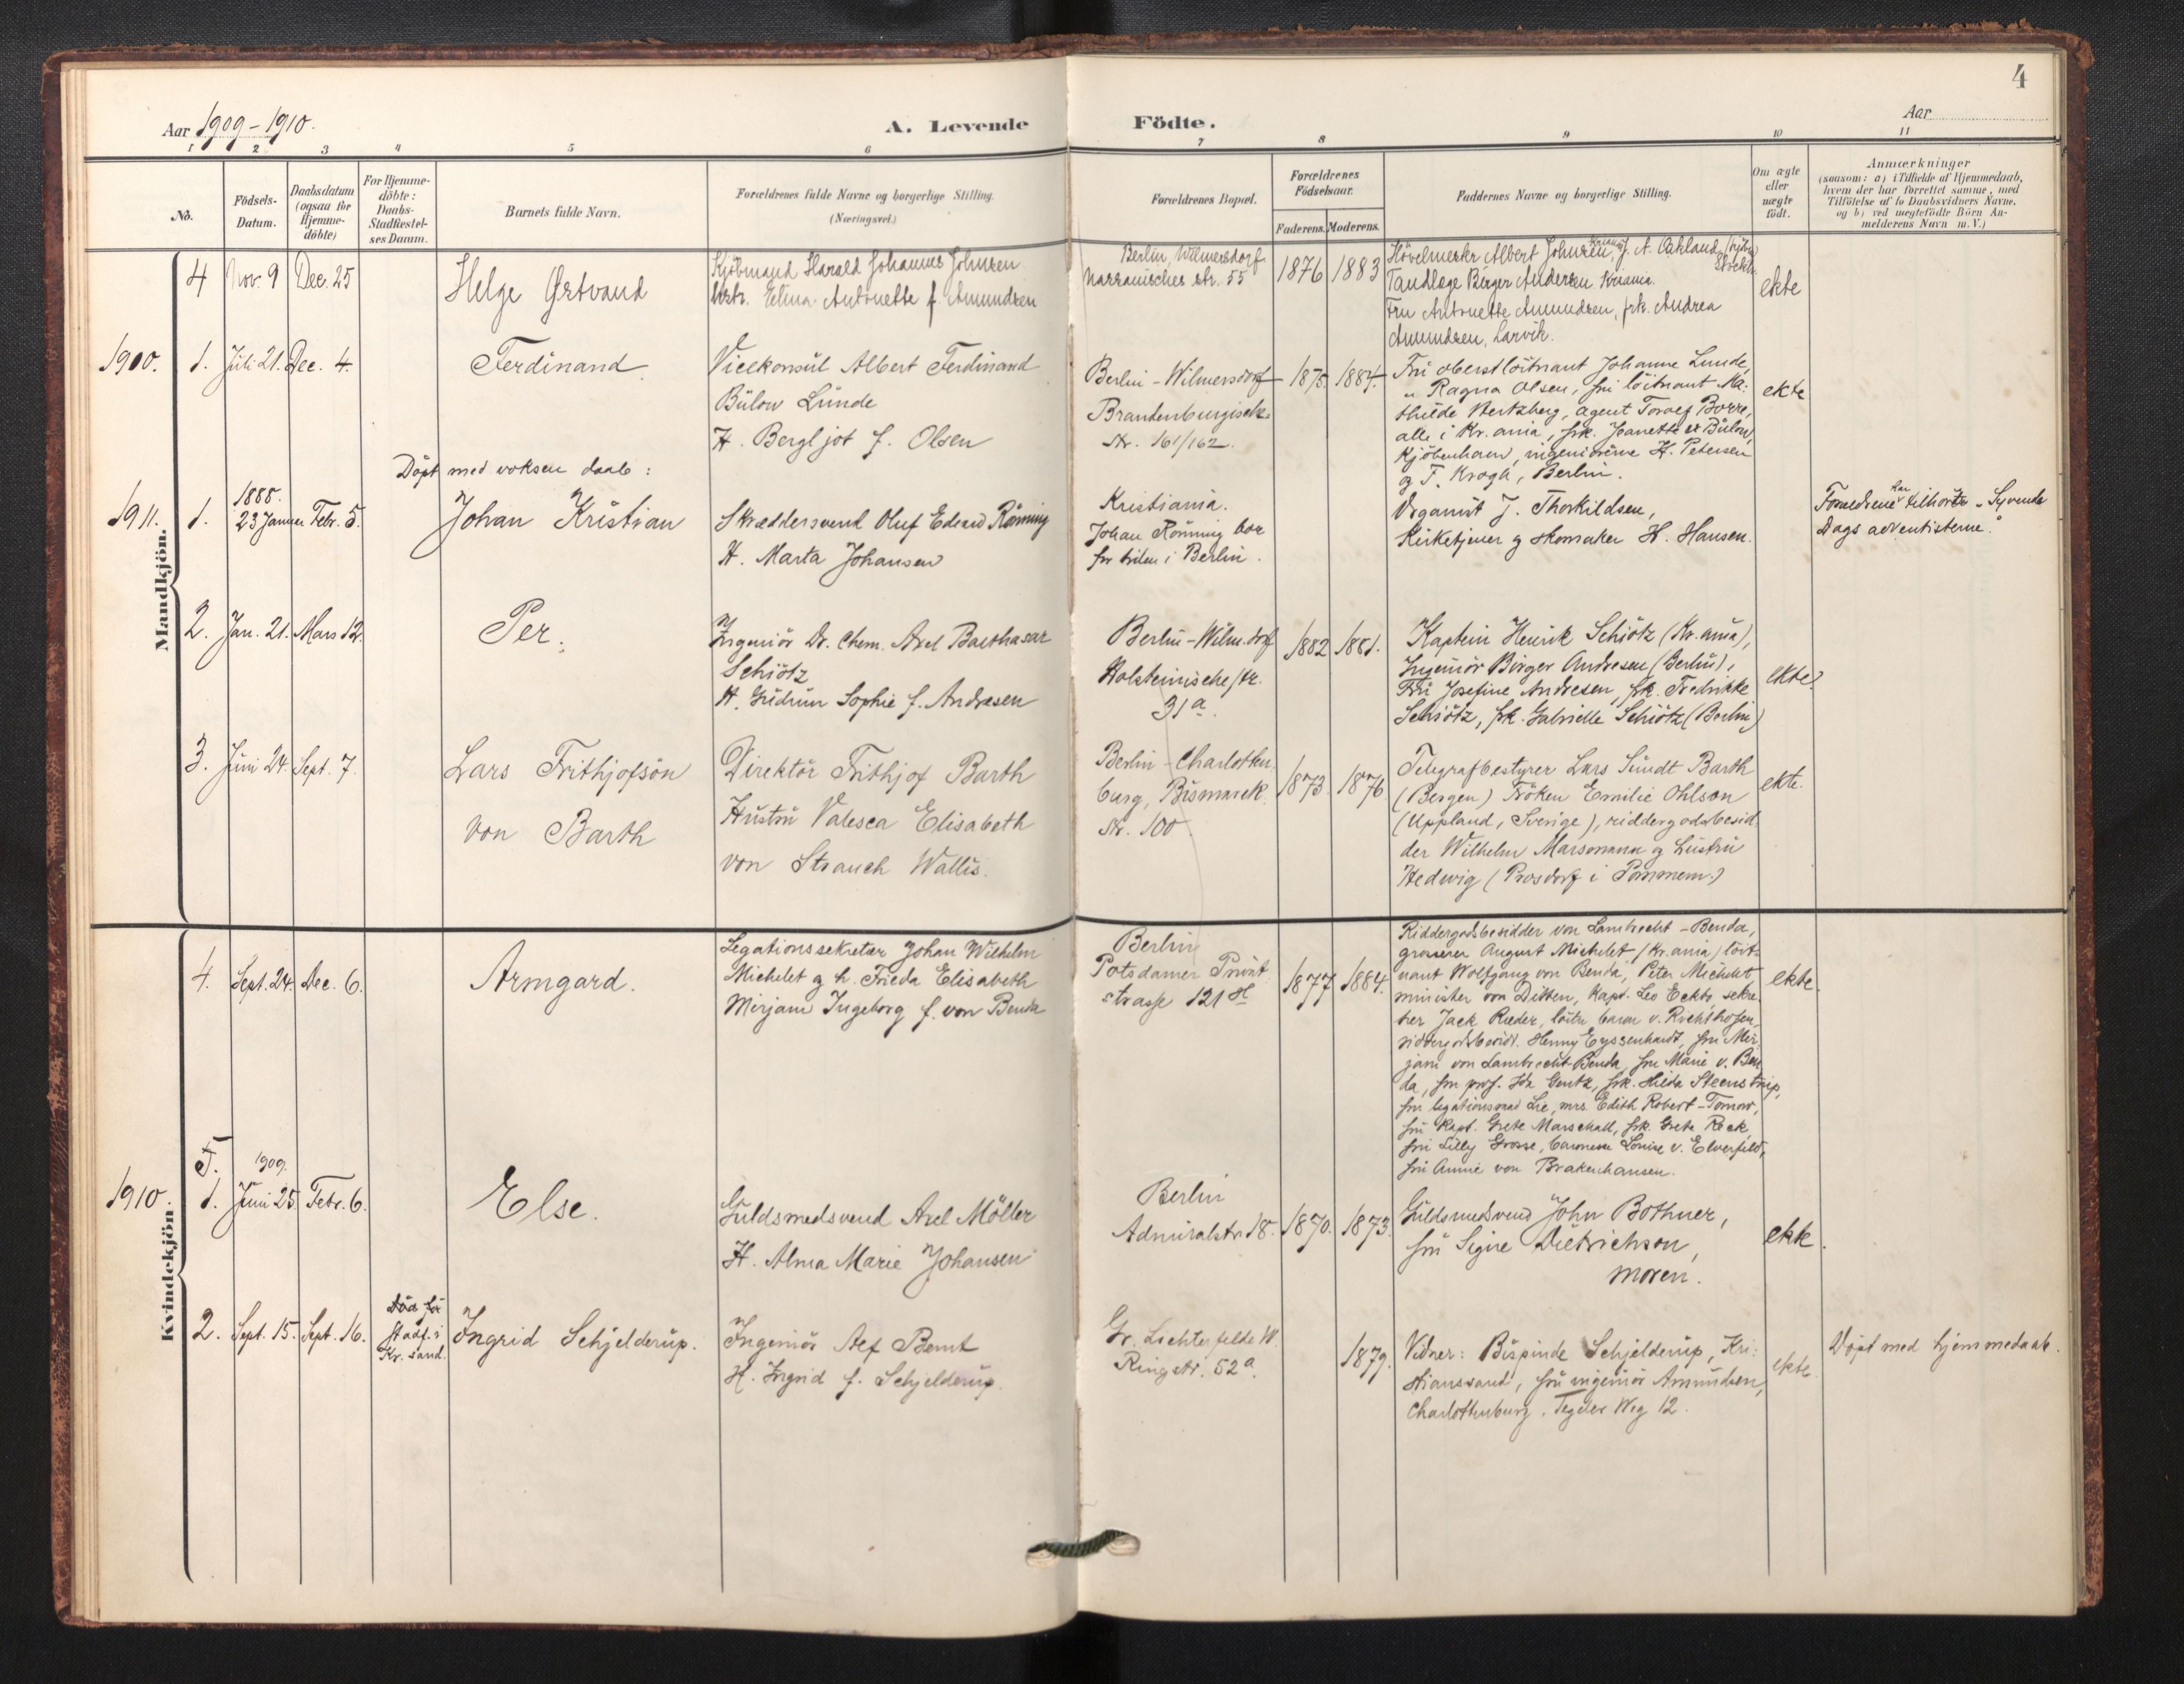 4
Aar 1909-1910.
A. Levende Födte.
Aar
1 2 3 4 5 6 7 8 9 10 11
No.
Födsels-
Datum.
Daabsdatum
(ogsaa for
Hjemme-
döbte)
For Hjemme-
döbte:
Daabs-
Stadfæstel-
ses Datum.
Barnets fulde Navn.
Forældrenes fulde Navne og borgerlige Stilling.
(Næringsvei.)
Forældrenes Bopæl.
Forældrenes
Födselsaar.
Faderens. Moderens.
Faddernes Navne og borgerlige Stilling.
Om ægte
eller
uægte
födt.
Anmærkninger
(saasom: a) i Tilfælde af Hjemmedaab,
hvem der har forrettet samme, med
Tilföielse af to Daabsvidners Navne,
og b) ved uægtefödte Börn An-
melderens Navn m.V.)
Mandkjön.
4 Nov. 9 Dec. 25
Helge Østvand
Kjöbmand Harald Johannes Johnsen
Hstr. Elina Antonette f. Amundsen
Berlin, Wilmersdorf
Nassauisches str. 55
1876 1883
Hövelmester Albert Johnsen, J. A. Oakland
Tandlæge Birger Andersen Kriania.
Fru Antonette Amundsen, frk. Andrea
Amundsen, Larvik.
ekte
1910.
1. Juli 21. Dec. 4.
Ferdinand
Vicekonsul Albert Ferdinand
Bülow Lunde
H. Bergljot f. Olsen
Berlin-Wilmersdorf
Brandenburgische
Str. 161/162.
1875. 1884.
Fru oberstlöitnant Johanne Lunde,
" Ragna Olsen, fru löitnant Ma-
thilde Hertzberg, agent Toralf Borre,
alle i Kr.ania, frk. Jeanette Bülow,
Kjöbenhavn, ingeniörerne H. Petersen
og F. Krogh, Berlin.
ekte
Döpt med voksen daab:
1911.
1. 1888.
23 Januar Febr. 5.
Johan Kristian
Skræddersvend Oluf Edvard Rönning
H. Marta Johansen
Kristiania.
Johan Rönning bor
for tiden i Berlin.
Organist J. Thorkildsen,
Kirketjener og skomaker H. Hansen.
Forældrene har tilhört "Syvende
Dags adventisterne."
2. Jan. 21. Mars 12.
Per.
Ingeniör Dr. Chem. Axel Balthasar
Schiötz
H. Gudrun Sophie f. Andresen
Berlin-Wilm.dorf
Holsteinische str.
31a.
1882 1881.
Kaptein Henrik Schiötz (Kr.ania),
Ingeniör Birger Andresen (Berlin),
Fru Josefine Andresen, frk. Fredrikke
Schiötz, frk. Gabrielle Schiötz (Berlin)
ekte
3. Juni 24. Sept. 7.
Lars Frithjofsön
von Barth
Direktör Frithjof Barth
Hustru Valesca Elisabeth
von Strauch Wallis.
Berlin-Charlotten-
burg, Bismarck
Str. 100
1873. 1876
Telegrafbestyrer Lars Sundt Barth
(Bergen) Fröken Emilie Ohlson
(Uppland, Sverige), riddergodsbesid-
der Wilhelm Marsmann og hustru
Hedwig (Prosdorf i Pommern.)
ekte.
Kvindekjön.
4. Sept. 24. Dec. 6.
Armgard.
Legationssekretær Johan Wilhelm
Michelet og h. Frieda Elisabeth
Mirjam Ingeborg f. von Benda
Berlin
Potsdamer Privat
strasse 121 H
1877 1884.
Riddergodsbesidder von Lambrecht-Benda,
grosserer August Michelet (Kr.ania) löit-
nant Wolfgang von Benda, Peter Michelet
minister von Ditten, Kapt. Leo Eckbo, sekre-
tær Jack Ræder, löitn. baron v. Richthofen,
riddergodsbesidd. Henny Eyssenhardt, fru Mir-
jam von Lambrecht-Benda, fru Marie v. Ben-
da, fru prof. Ida Gentz, frk. Hilda Steenstrup,
fru legationsraad Lie, mrs. Edith Robert-Tornow,
fru Kapt. Grete Marschall, frk. Grete Reck,
fru Lilly Grosse, baronesse Louise v. Elverfeldt,
fru Annie von Brakenhausen.
ekte.
1910.
1. 1909.
Juni 25. Febr. 6.
Else.
Guldsmedsvend Axel Möller
H. Alma Marie Johansen
Berlin
Admiralstr. 18.
1870. 1873.
Guldsmedsvend John Bothner,
fru Signe Dietrichson,
moren.
ekte.
2. Sept. 15. Sept. 16.
Död för
stadf. i
Kr.sand.
Ingrid Schjelderup.
Ingeniör Alf Bernt
H. Ingrid f. Schjelderup.
Gr. Lichterfelde W.
Ringstr. 52a.
1879.
Vidner: Bispinde Schjelderup, Kri-
stianssand, fru ingeniör Amundsen,
Charlottenburg. Tegeler Weg 12.
ekte.
Döpt med hjemmedaab.